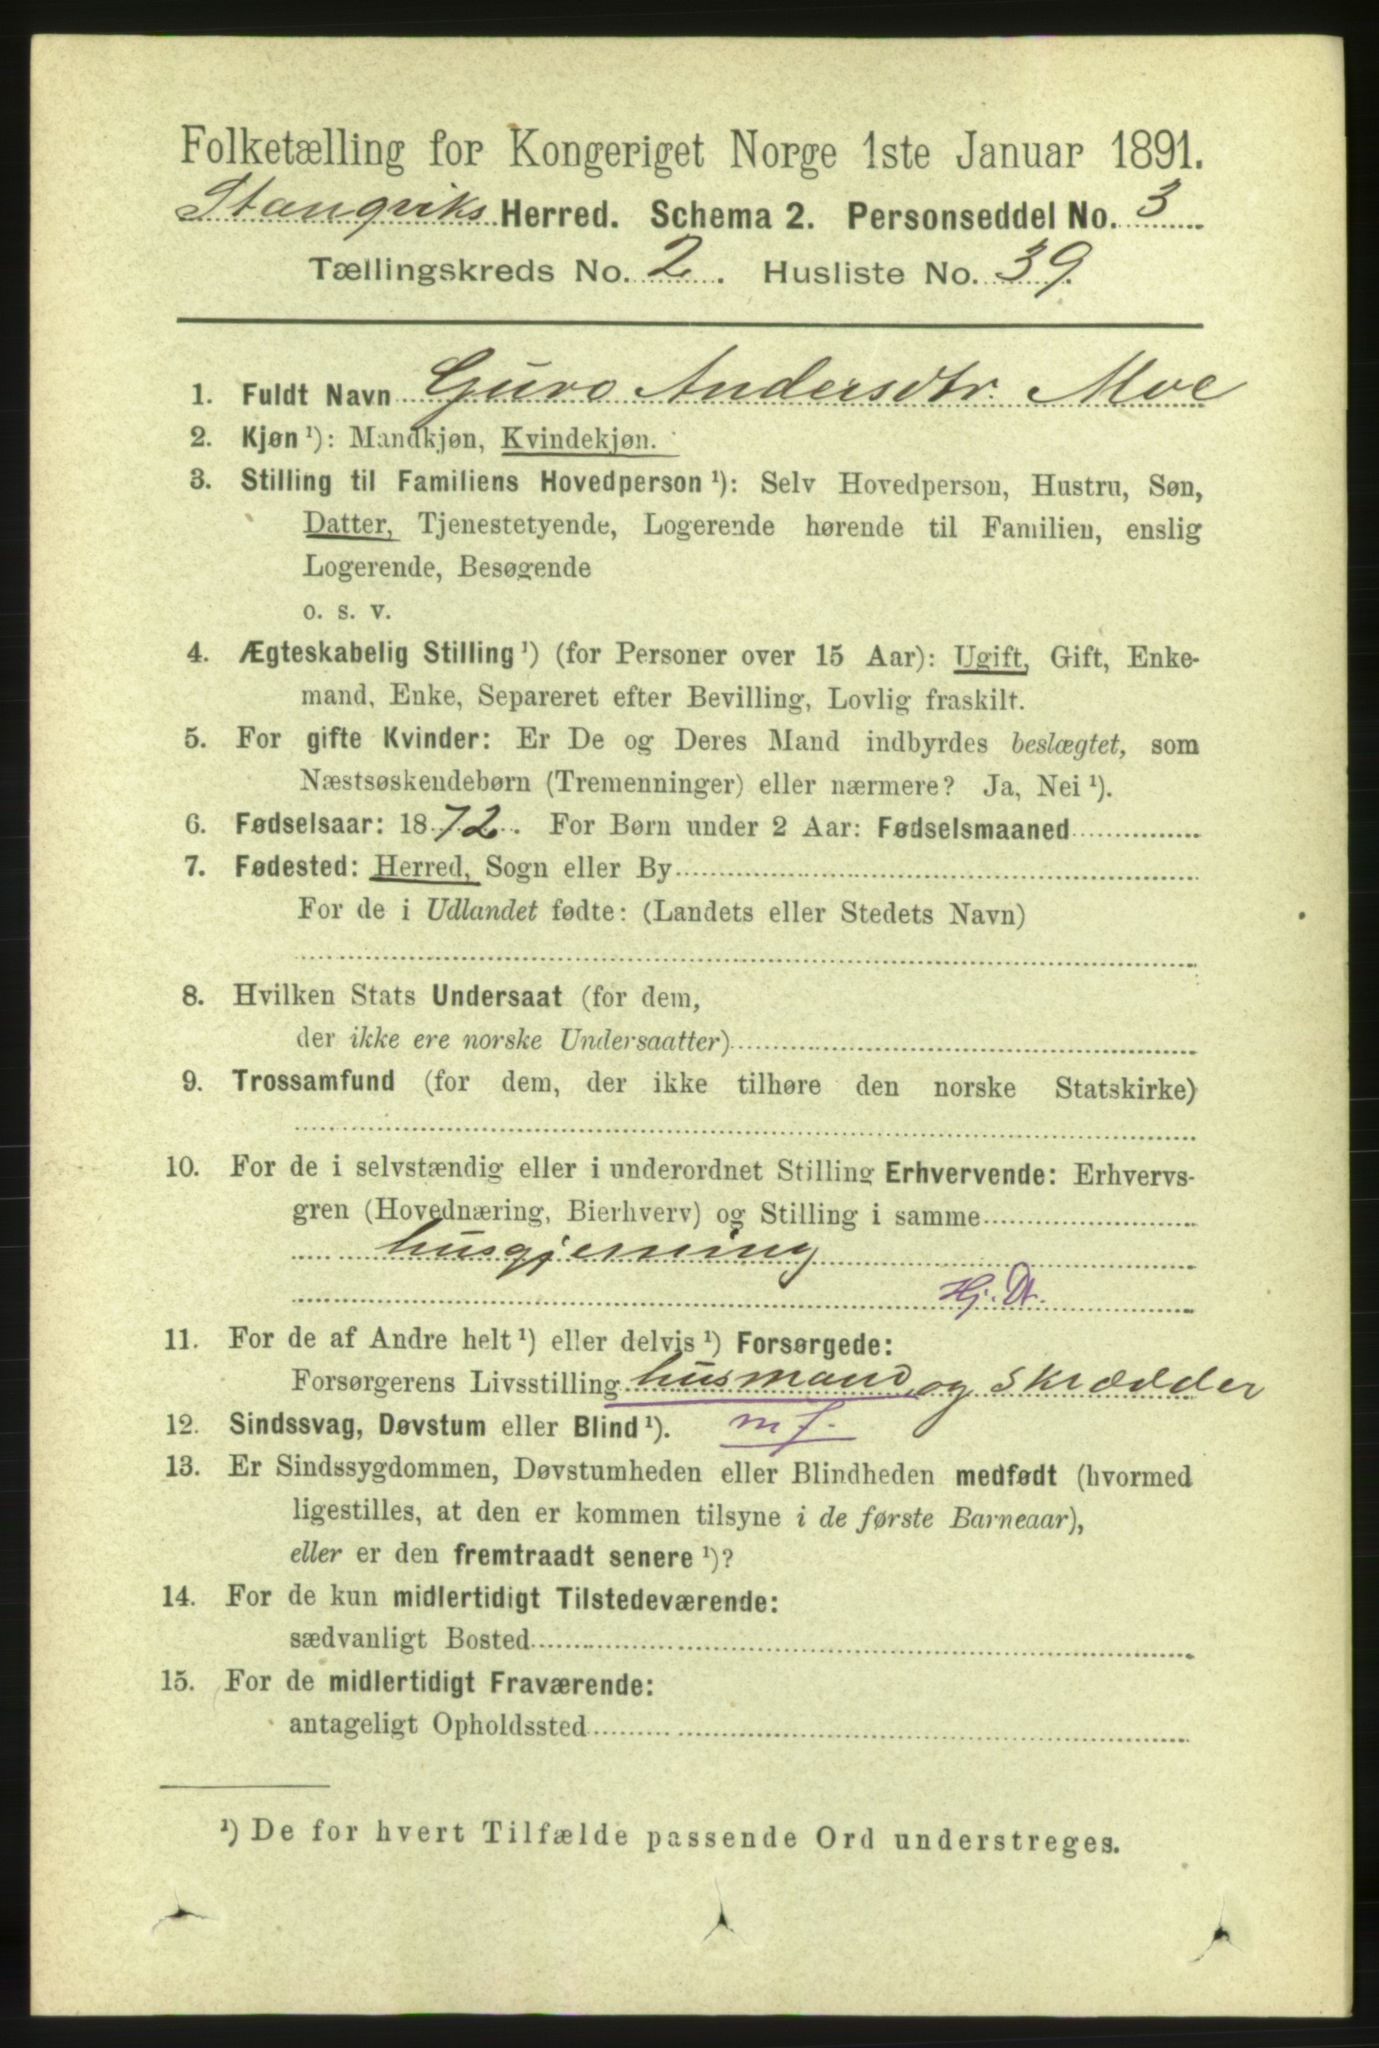 Folketælling for Kongeriget Norge 1ste Januar 1891.
Stangviks Herred. Schema 2. Personseddel No. 3
Tællingskreds No. 2. Husliste No. 39.
1. Fuldt Navn Guro Andersdtr. Moe
2. Kjøn ¹): Mandkjøn, Kvindekjøn.
3. Stilling til Familiens Hovedperson ¹): Selv Hovedperson, Hustru, Søn,
Datter, Tjenestetyende, Logerende hørende til Familien, enslig
Logerende, Besøgende
o. s. v.
4. Ægteskabelig Stilling ¹) (for Personer over 15 Aar): Ugift, Gift, Enke-
mand, Enke, Separeret efter Bevilling, Lovlig fraskilt.
5. For gifte Kvinder: Er De og Deres Mand indbyrdes beslægtet, som
Næstsøskendebørn (Tremenninger) eller nærmere? Ja, Nei ¹).
6. Fødselsaar: 1872. For Børn under 2 Aar: Fødselsmaaned
7. Fødested: Herred, Sogn eller By
For de i Udlandet fødte: (Landets eller Stedets Navn)
8. Hvilken Stats Undersaat (for dem,
der ikke ere norske Undersaatter)
9. Trossamfund (for dem, der ikke tilhøre den norske Statskirke)
10. For de i selvstændig eller i underordnet Stilling Erhvervende: Erhvervs-
gren (Hovednæring, Bierhverv) og Stilling i samme
husgjerning
Hj. Dt.
11. For de af Andre helt ¹) eller delvis ¹) Forsørgede:
Forsørgerens Livsstilling husmand og skrædder
12. Sindssvag, Døvstum eller Blind ¹). m f.
13. Er Sindssygdommen, Døvstumheden eller Blindheden medfødt (hvormed
ligestilles, at den er kommen tilsyne i de første Barneaar),
eller er den fremtraadt senere ¹)?
14. For de kun midlertidigt Tilstedeværende:
sædvanligt Bosted
15. For de midlertidigt Fraværende:
antageligt Opholdssted
¹) De for hvert Tilfælde passende Ord understreges.